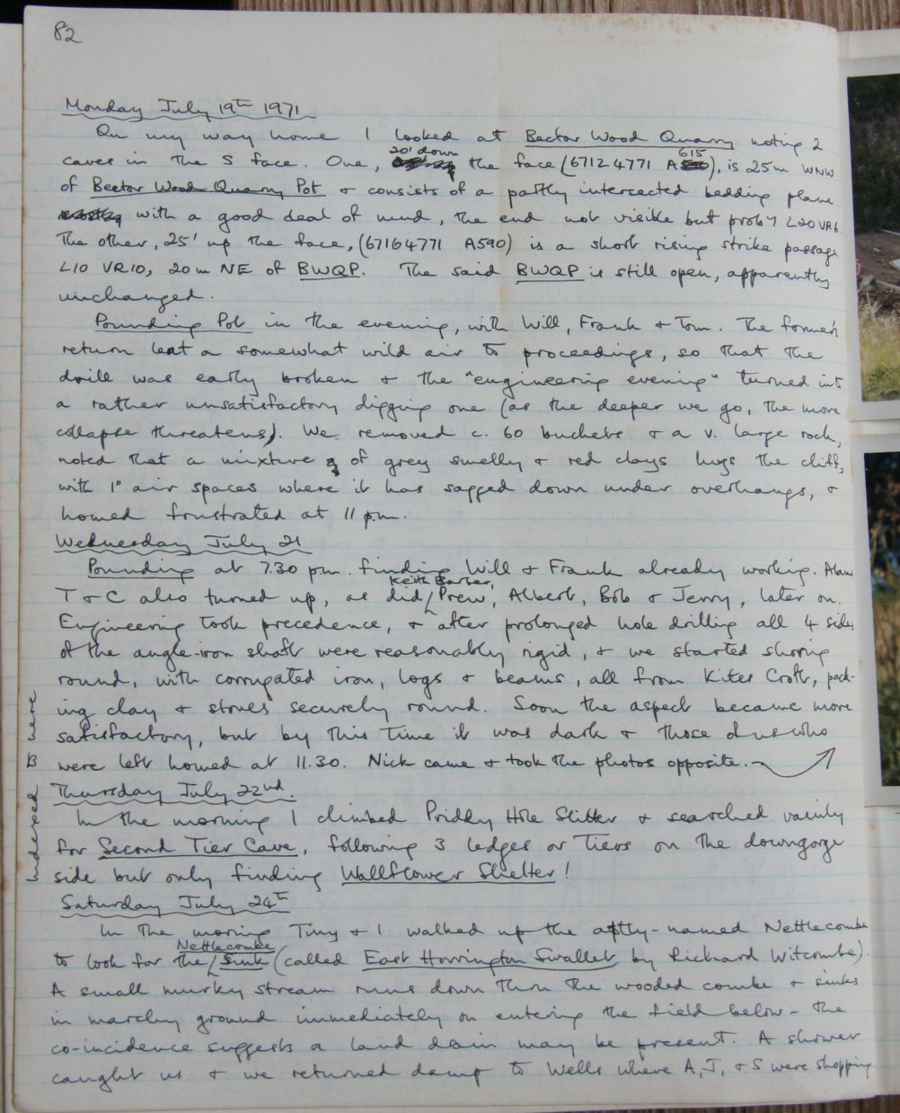 82
Monday July 19th 1971
On my way home I looked at Bector Wood Quarry noting 2
caves in the S face. One, 20' down the face (6712 4771 A615), is 25m WNW
of Bector Wood Quarry Pot & consists of a partly intersected bedding plane
with a good deal of mud, the end not visible but prob'y L20 VR6.
The other, 25' up the face, (6716 4771 A590) is a short rising strike passage
L10 VR10, 20m NE of BWQP. The said BWQP is still open, apparently
unchanged.
Pounding Pot in the evening, with Will, Frank & Tom. The former's
return lent a somewhat wild air to proceedings, so that the
drill was early broken & the "engineering evening" turned into
a rather unsatisfactory digging one (as the deeper we go, the more
collapse threatens). We removed c. 60 buckets & a v. large rock,
noted that a mixture of grey smelly & red clays hugs the cliff,
with 1" air spaces where it has sagged down under overhangs, &
homed frustrated at 11 p.m.
Wednesday July 21
Pounding at 7.30 pm. finding Will & Frank already working. Alan
T & C also turned up, as did Keith Barber, 'Prew', Albert, Bob & Jenny, later on.
Engineering took precedence, & after prolonged hole drilling all 4 sides
of the angle-iron shaft were reasonably rigid, & we started shoring
round, with corrugated iron, logs & beams, all from Kites Croft, pack-
ing clay & stones securely round. Soon the aspect became more
satisfactory, but by this time it was dark & those of us who
were left homed at 11.30. Nick came & took the photos opposite.
Thursday July 22nd.
In the morning I climbed Priddy Hole Slitter & searched vainly
for Second Tier Cave, following 3 ledges or Tiers on the downgorge
side but only finding Wallflower Shelter!
Saturday July 24th
In the morning Tiny & I walked up the aptly-named Nettlecombe
to look for the Nettlecombe Sink (called East Horrington Swallet by Richard Witcombe).
A small murky stream runs down thru the wooded combe & sinks
in marshy ground immediately on entering the field below - the
co-incidence suggests a land drain may be present. A shower
caught us & we returned damp to Wells where A, J, & S were shopping
Indexed B were